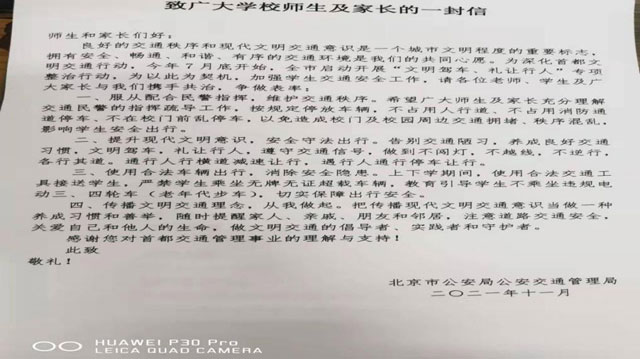 致广大学校师生及家长的一封信
师生和家长们好:
良好的交通秩序和现代文明交通意识是一个城市文明程度的重要标志,
拥有安全、畅通、和谐、有序的交通环境是我们的共同心愿。为深化首都文
明交通行动,今年7月底开始,全市启动开展“文明驾车、礼让行人”专项
整治行动。为以此为契机,加强学生交通安全工作,请各位老师、学生及广
大家长与我们携手共治,争做表率:
一、服从配合民警指挥,维护交通秩序。希望广大师生及家长充分理解
交通民警的指挥疏导工作,按规定停放车辆,不占用人行道、不占用消防通
道停车、不在校门前乱停车,以免造成校门及校园周边交通拥堵、秩序混乱,
影响学生安全出行。
二、提升现代文明意识,安全守法出行。告别交通陋习,养成良好交通
习惯,文明驾车,礼让行人,遵守交通信号,做到不闯灯,不越线,不逆行,
各行其道。通行人行横道减速让行,遇行人通行停车让行。
三、使用合法车辆出行,消除安全隐患。上下学期间,使用合法交通工
具接送学生,严禁学生乘坐无牌无证超载车辆,教育引导学生不乘坐违规电
动三、四轮车(老年代步车),切实保障出行安全。
四、传播文明交通理念,从我做起。把传播现代文明交通意识当做一种
养成习惯和善举,随时提醒家人、亲戚、朋友和邻居,注意道路交通安全,
关爱自己和他人的生命,做文明交通的倡导者、实践者和守护者。
感谢您对首都交通管理事业的理解与支持!
此致
敬礼!
北京市公安局公安交通管理局
二〇二一年十一月
HUAWEI P30 Pro
LEICA QUAD CAMERA